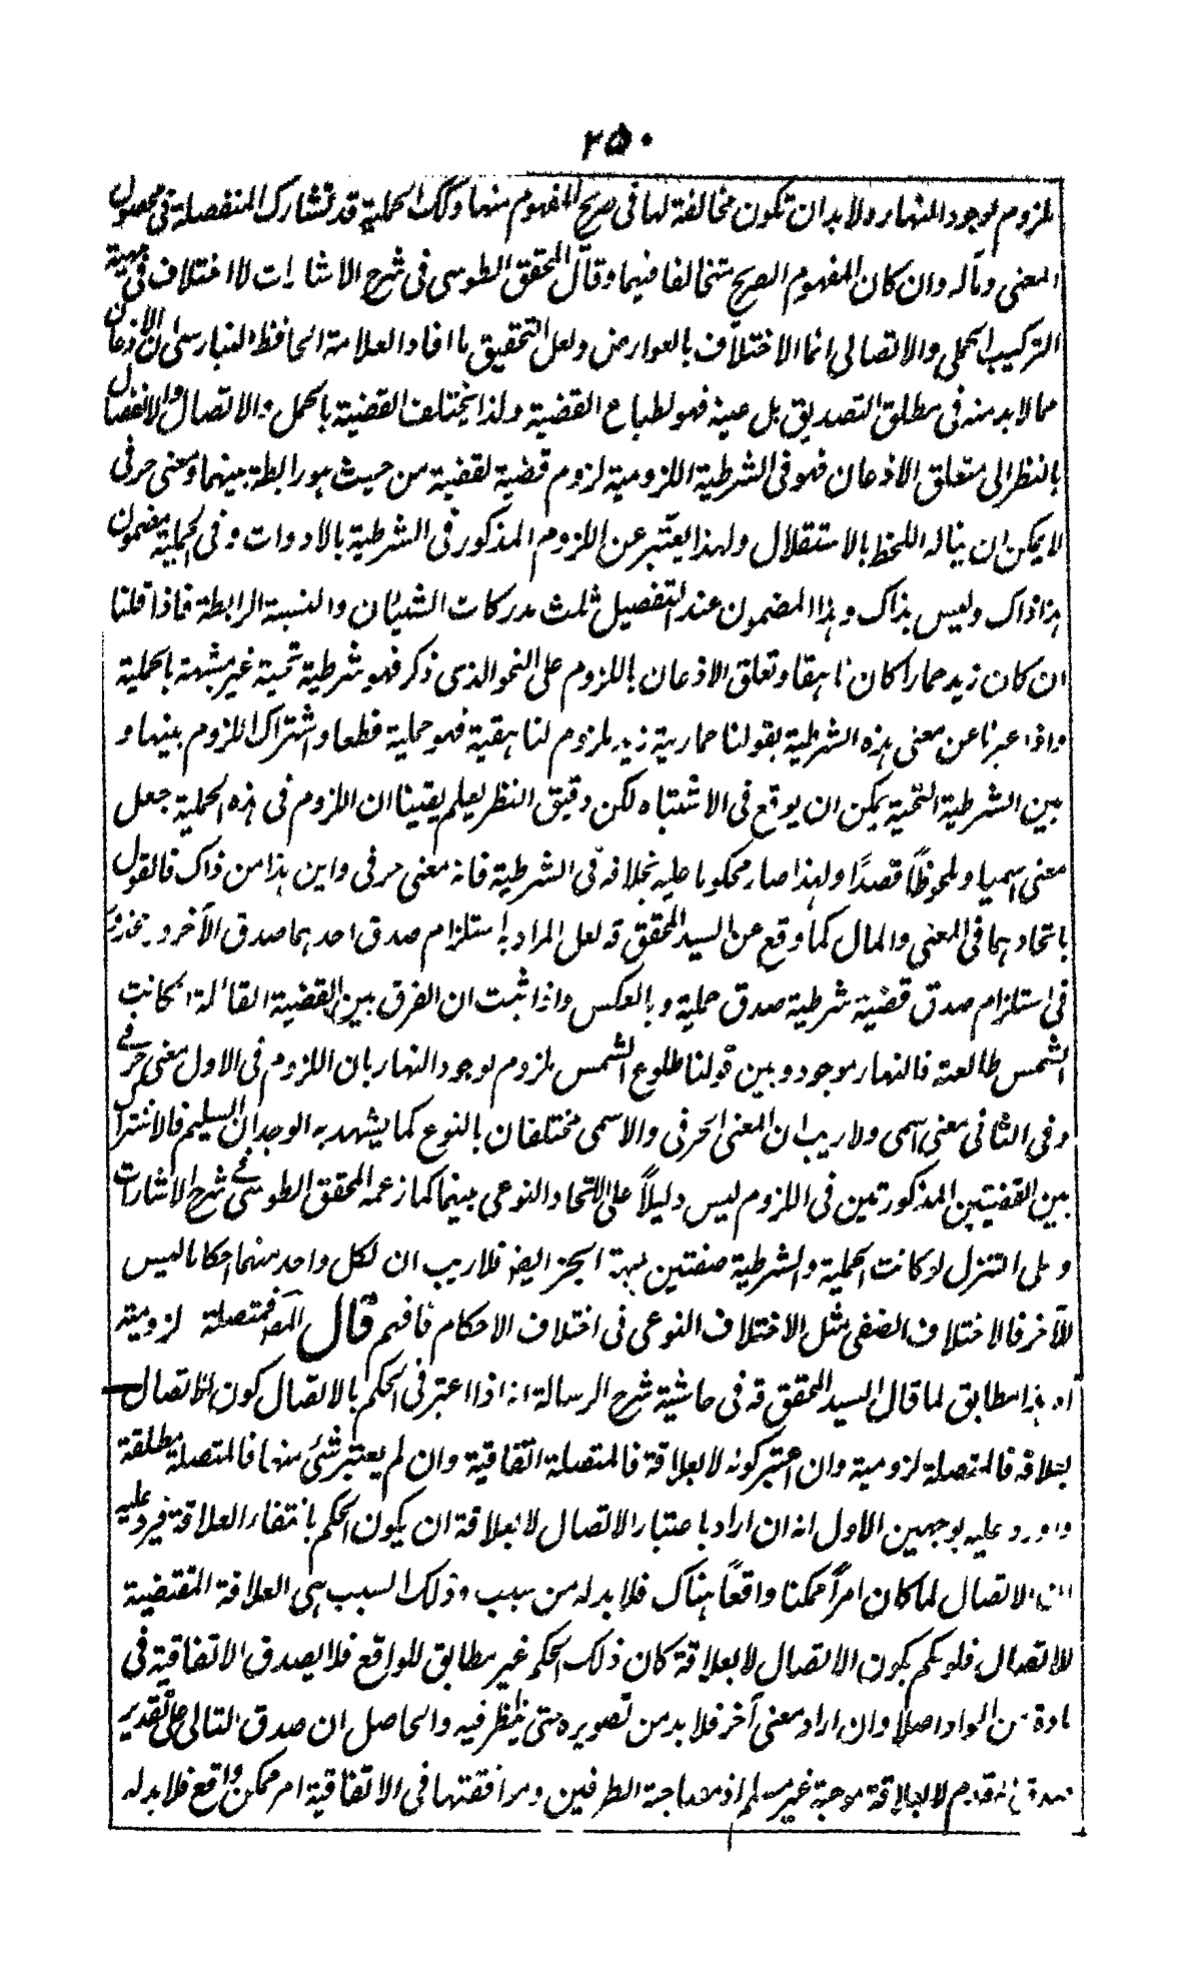 ٢٥٠
ملزوم لوجود النهار ولابد ان تكون مخالفة لها فى صريح المفهوم منها وكذلك الحملية قد تشارك المنفصلة فى محصول
المعنى ومآله وان كان المفهوم الصريح متخالفا فيهما وقال المحقق الطوسى فى شرح الاشارات لا اختلاف فى جهة
التركيب الحملى والاتصالى انما الاختلاف بالعوارض ولعل التحقيق ما افاد العلامة الحافظ البنارسى ان الاذعان
مما لابد منه فى مطلق التصديق بل عينه فهو لطباع القضية ولذا يختلف القضية بالحمل والاتصال والانفصال
بالنظر الى متعلق الاذعان فهو فى الشرطية اللزومية لزوم قضية لقضية من حيث هو رابطة بينهما ومعنى حرفى
لا يمكن ان يناله اللحظ بالاستقلال ولهذا يعتبر عن اللزوم المذكور فى الشرطية بالادوات وفى الحملية مضمون
هذا ذاك وليس بذاك وهذا المضمون عند التفصيل ثلث مدركات الشيئان والنسبة الرابطة فاذا قلنا
ان كان زيد حمارا كان ناهقا وتعلق الاذعان باللزوم على النحو الذى ذكر فهو شرطية تحتية غير مشبهة بالحملية
واذا عبرنا عن معنى هذه الشرطية بقولنا حمارية زيد ملزوم لناهقية فهو حملية قطعا واشتراك اللزوم بينها و
بين الشرطية التحتية يمكن ان يوقع فى الاشتباه لكن دقيق النظر يعلم يقينا ان اللزوم فى هذه الحملية جعل
معنى اسميا وملحوظاً قصدًا ولهذا صار محكوما عليه بخلافه فى الشرطية فانه معنى حرفى واين هذا من ذاك فالقول
باتحادهما فى المعنى والمال كما وقع عن السيد المحقق قه لعل المراد به استلزام صدق احدهما صدق الآخر و
فى استلزام صدق قضية شرطية صدق حملية وبالعكس واذا ثبت ان الفرق بين القضية القائلة ان كانت
الشمس طالعة فالنهار موجود وبين قولنا طلوع الشمس ملزوم لوجود النهار بان اللزوم فى الاول معنى حرفى
وفى الثانى معنى اسمى ولا ريب ان المعنى الحرفى والاسمى مختلفان بالنوع كما يشهد به الوجدان السليم فالاشتراك
بين القضيتين المذكورتين فى اللزوم ليس دليلاً على الاتحاد النوعى بينهما كما زعمه المحقق الطوسى فى شرح الاشارات
وعلى التنزل لو كانت الحملية والشرطية صنفتين بهذة الجزالية فلا ريب ان لكل واحد منهما احكاما ليس
للآخر فالاختلاف الصنفى مثل الاختلاف النوعى فى اختلاف الاحكام فافهم قال المصـ فمتصلة لزومية
اه هذا مطابق لما قال السيد المحقق قه فى حاشية شرح الرسالة انه اذا اعتبر فى الحكم بالاتصال كون الاتصال
بعلاقة فالمتصلة لزومية وان اعتبر كونه لا بعلاقة فالمتصلة اتفاقية وان لم يعتبر شئ منهما فالمتصلة مطلقة
واورد عليه بوجهين الاول انه ان اراد باعتبار الاتصال لا بعلاقة ان يكون الحكم بانتفاء العلاقة فيرد عليه
ان الاتصال لما كان امراً ممكنا واقعاً هناك فلابد له من سبب وذلك السبب هى العلاقة المقتضية
للاتصال فلو حكم بكون الاتصال لا بعلاقة كان ذلك الحكم غير مطابق للواقع فلا يصدق الاتفاقية فى
مادة من المواد اصلا وان اراد معنى آخر فلابد من تصويره حتى ينظر فيه والحاصل ان صدق التالى على تقدير
صدق المقدم لا لعلاقة موجبة غير مسلم اذ مصاحبة الطرفين وموافقتهما فى الاتفاقية امر ممكن واقع فلابد له